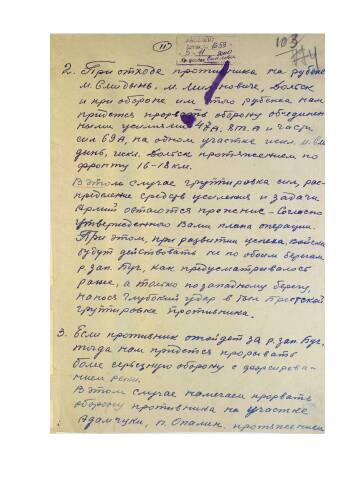 11
103
2. При отходе противника на рубеж
м. Смидынь, м. Мил новиче, Вольск
и при обороне им этого рубежа нам
придется прорвать оборону объединен-
ными усилиями 47А, 8гв.А и части
сил 69А, на одном участке искл. м. Сми-
дынь, искл. Вольск протяжением по
фронту 16-18 км.
В этом случае группировка сил, рас-
пределение средств усиления и задачи
Армий остаются прежние - согласно
утвержденного Вами плана операции.
При этом, при развитии успеха, войска
будут действовать не по обоим берегам
р. зап. Буг, как предусматривалось
ранее, а только по западному берегу,
нанося глубокий удар в тыл Брестской
группировке противника.
3. Если противник отойдет за р. зап. Буг,
тогда нам придется прорывать
более серьезную оборону с форсирова-
нием реки.
В этом случае намечаем прорвать
оборону противника на участке
Адамчуки, п. Опалин, протяжением